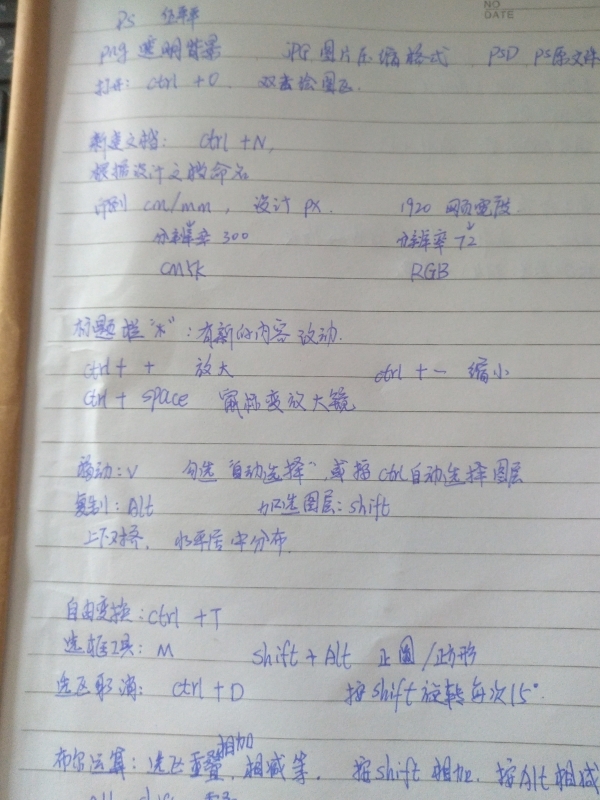 NO
DATE
PS 位苹苹
png 透明背景 JPG 图片压缩格式 PSD PS原文件
打开: ctrl + O 双击绘图区.
新建文档: ctrl + N,
根据设计文档命名
印刷 cm/mm, 设计 px. 1920 网页宽度.
分辨率 300 分辨率 72
CMYK RGB
标题栏"*": 有新的内容改动.
ctrl + + 放大 ctrl + - 缩小
ctrl + space 鼠标变放大镜
移动: V 勾选"自动选择", 或按ctrl自动选择图层
复制: Alt 加选图层: shift
上下对齐, 水平居中分布.
自由变换: ctrl + T
选框工具: M shift + Alt 正圆/正方形
选区取消: ctrl + D 按shift旋转每次15°.
布尔运算: 选区重叠, 相加 相减等. 按shift 相加. 按Alt 相减